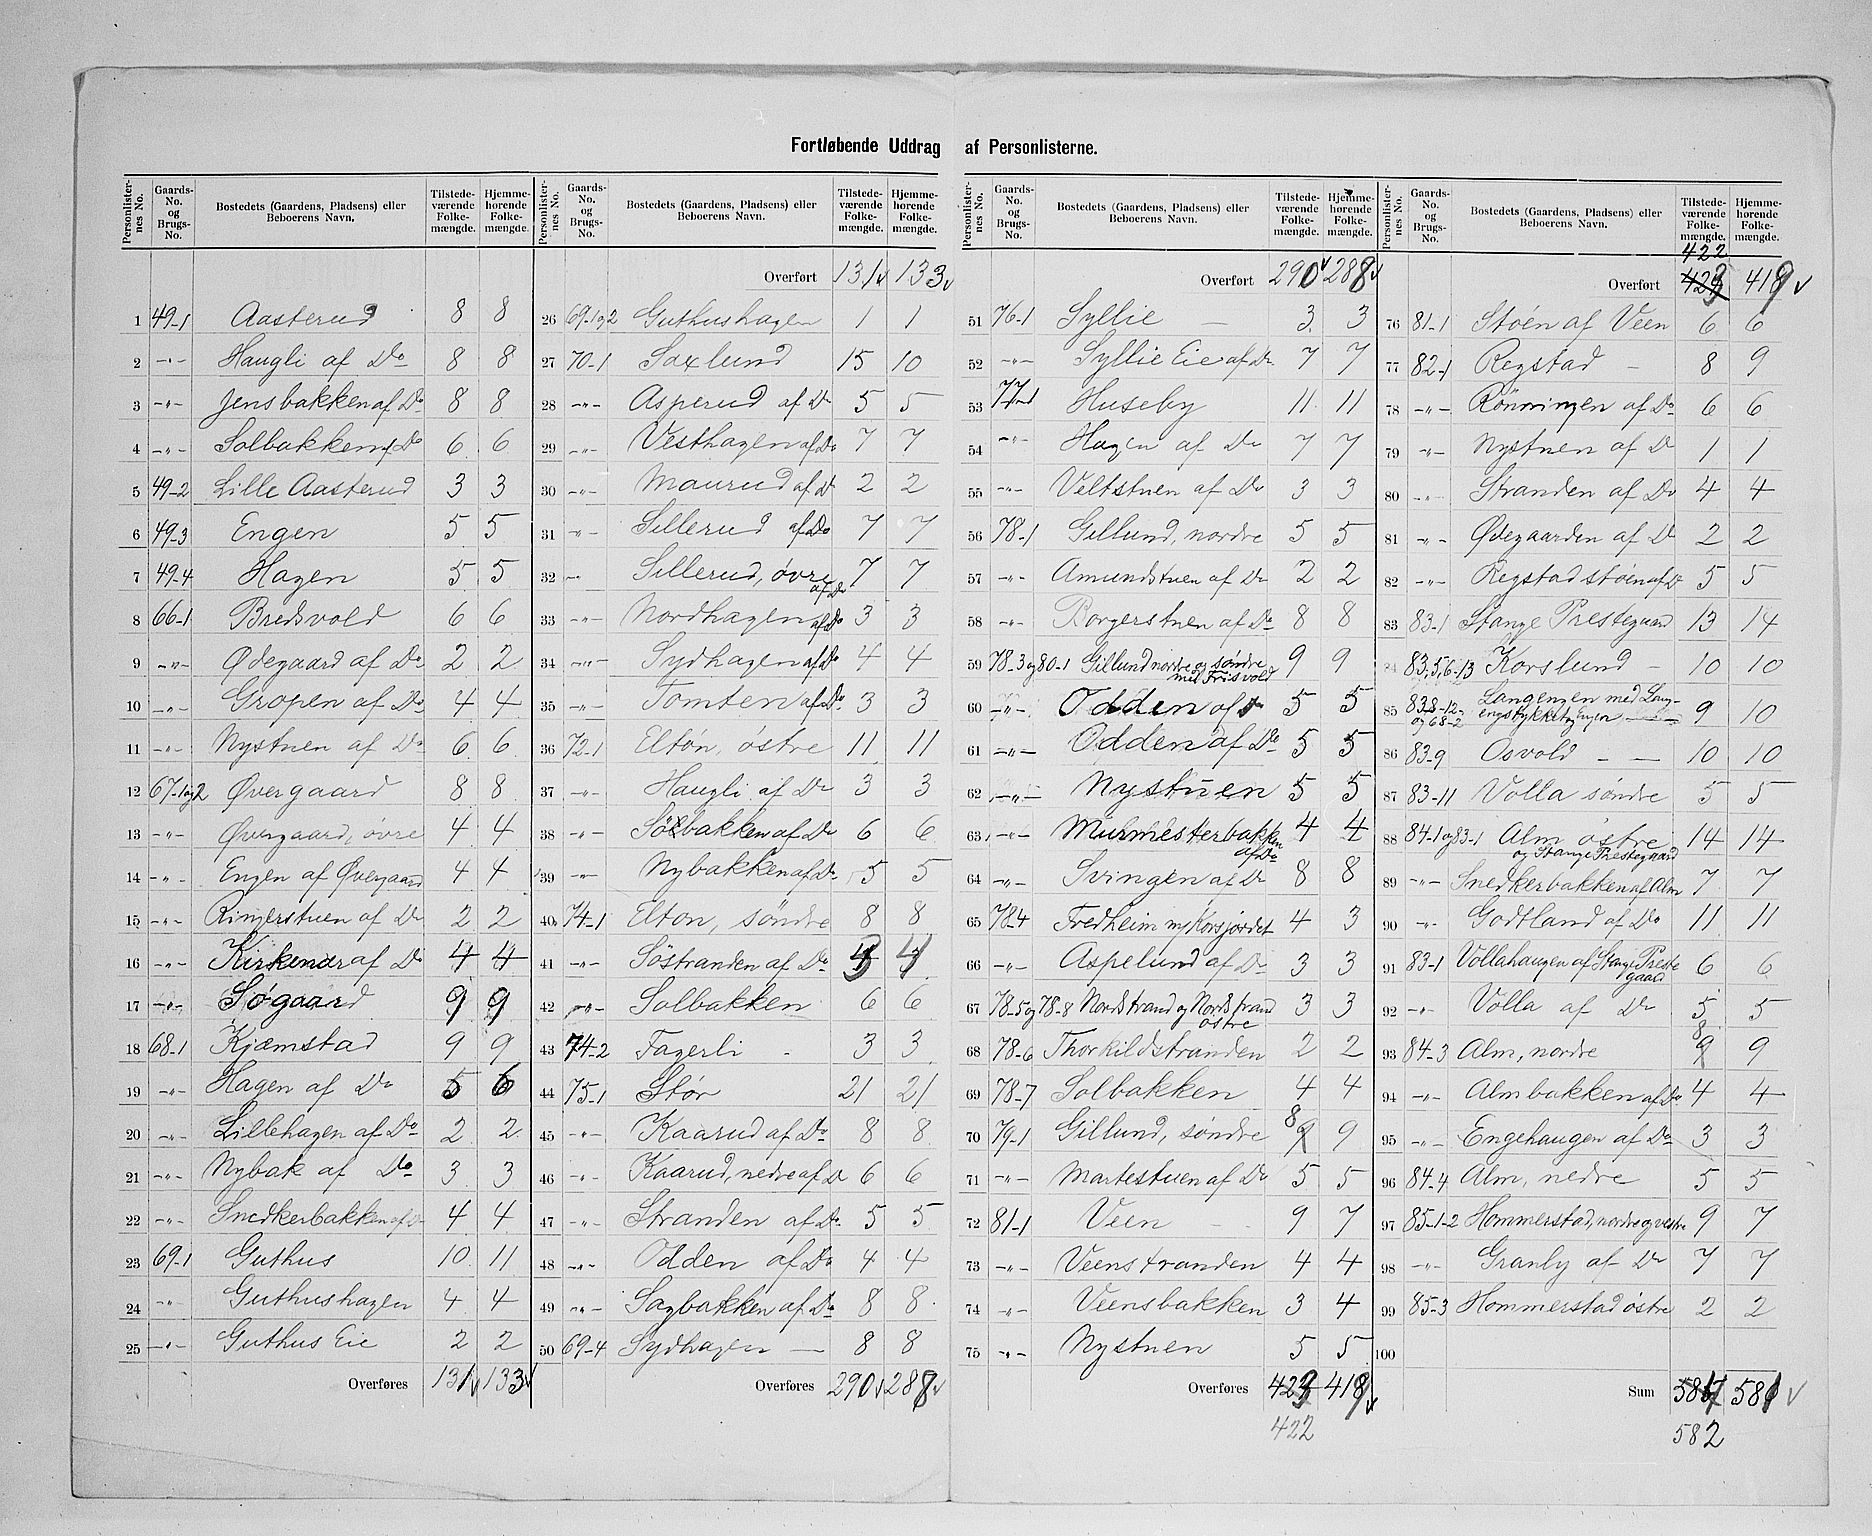 Fortløbende Uddrag af Personlisterne.
Personlisternes No. | Gaards-No. og Brugs-No. | Bostedets (Gaardens, Pladsens) eller Beboerens Navn. | Tilstedeværende Folkemængde. | Hjemmehørende Folkemængde.
1 49-1 Aasterud 8 8
2 -"- Haugli af Do 8 8
3 -"- Jensbakken af Do 8 8
4 -"- Solbakken af Do 6 6
5 49-2 Lille Aasterud 3 3
6 49-3 Engen 5 5
7 49-4 Hagen 5 5
8 66-1 Bredsvold 6 6
9 -"- Ødegaard af Do 2 2
10 -"- Gropen af Do 4 4
11 -"- Nystuen af Do 6 6
12 67-1og2 Øvergaard 8 8
13 -"- Øvergaard, øvre 4 4
14 -"- Engen af Øvergaard 4 4
15 -"- Ringerstuen af Do 2 2
16 -"- Kirkenær af Do 4 4
17 -"- Søgaard 9 9
18 68-1 Kjæmstad 9 9
19 -"- Hagen af Do 5 6
20 -"- Lillehagen af Do 2 2
21 -"- Nybak af Do 3 3
22 -"- Snedkerbakken af Do 4 4
23 69-1 Guthus 10 11
24 -"- Guthushagen 4 4
25 -"- Guthus Eie 2 2
Overføres 131 133
Personlisternes No. | Gaards-No. og Brugs-No. | Bostedets (Gaardens, Pladsens) eller Beboerens Navn. | Tilstedeværende Folkemængde. | Hjemmehørende Folkemængde.
Overført 131 133
26 69-1og2 Guthushagen 1 1
27 70-1 Saxlund 15 10
28 -"- Asperud af Do 5 5
29 -"- Vesthagen af Do 7 7
30 -"- Maurud af Do 2 2
31 -"- Sillerud af Do 7 7
32 -"- Sillerud, øvre af Do 7 7
33 -"- Nordhagen af Do 3 3
34 -"- Sydhagen af Do 4 4
35 -"- Tomten af Do 3 3
36 72-1 Eltøn, østre 11 11
37 -"- Haugli af Do 3 3
38 -"- Sølbakken af Do 6 6
39 -"- Nybakken af Do 5 5
40 74-1 Elton, søndre 8 8
41 -"- Söstranden af Do 4
42 -"- Solbakken 6 6
43 74-2 Fagerli - 3 3
44 75-1 Stör 21 21
45 -"- Kaarud af Do 8 8
46 -"- Kaarud, nedre af Do 6 6
47 -"- Stranden af Do 5 5
48 -"- Odden af Do 4 4
49 -"- Sagbakken af Do 8 8
50 69-4 Sydhagen — 8 8
Overføres 290 288
Personlisternes No. | Gaards-No. og Brugs-No. | Bostedets (Gaardens, Pladsens) eller Beboerens Navn. | Tilstedeværende Folkemængde. | Hjemmehørende Folkemængde.
Overført 290 288
51 76-1 Syllie — 3 3
52 -"- Syllie Eie af Do 7 7
53 77-1 Huseby 11 11
54 -"- Hagen af Do 7 7
55 -"- Veltstuen af Do 3 3
56 78-1 Gillund, nordre 5 5
57 -"- Amundstuen af Do 2 2
58 -"- Borgerstuen af Do 8 8
59 78-3og80-1 Gillund nordre og søndre med Frisvold 9 9
60 -"- Odden af Do 5 5
61 -"- Odden af Do 5 5
62 -"- Nystuen 5 5
63 -"- Murmesterbakken af Do 4 4
64 -"- Svingen af Do 8 8
65 78-4 Fredheim m/Korsjordet 4 3
66 -"- Aspelund af Do 3 3
67 78-5og78-8 Nordstrand og Nordstrand østre 3 3
68 78-6 Thorkildstranden 2 2
69 78-7 Solbakken 4 4
70 79-1 Gillund, søndre 8 9 9
71 -"- Martestuen af Do 5 5
72 81-1 Veen - - 9 7
73 -"- Veenstranden 4 4
74 -"- Veensbakken 3 4
75 -"- Nystuen 5 5
Overføres 423 418
422
Personlisternes No. | Gaards-No. og Brugs-No. | Bostedets (Gaardens, Pladsens) eller Beboerens Navn. | Tilstedeværende Folkemængde. | Hjemmehørende Folkemængde.
422
Overført 423 419
76 81-1 Støen af Veen 6 6
77 82-1 Regstad - 8 9
78 -"- Rønningen af Do 6 6
79 -"- Nystuen af Do 1 1
80 -"- Stranden af Do 4 4
81 -"- Ødegaarden af Do 2 2
82 -"- Regstadstøen af Do 5 5
83 83-1 Stange Prestegaard 13 14
84 83,5,6-13 Korslund - 10 10
85 83,8-12- og 68-2 Langengen med Langengstykket, Engen 9 10
86 83-9 Osvold - — 10 10
87 83-11 Volla søndre 5 5
88 84-1og83-1 Alm østre og Stange Prestegaard 14 14
89 -"- Snedkerbakken af Alm 7 7
90 -"- Godtland af Do 11 11
91 83-1 Vollahaugen af Stange Prestegaard 6 6
92 -"- Volla af Do 5 5
93 84-3 Alm, nordre 8 9 9
94 -"- Almbakken af Do 4 4
95 -"- Engehaugen af Do 3 3
96 84-4 Alm, nedre 5 5
97 85-1-2 Hommerstad, nordre og vestre 9 7
98 -"- Granly af Do 7 7
99 85-3 Hommerstad østre 2 2
100
Sum 581
582